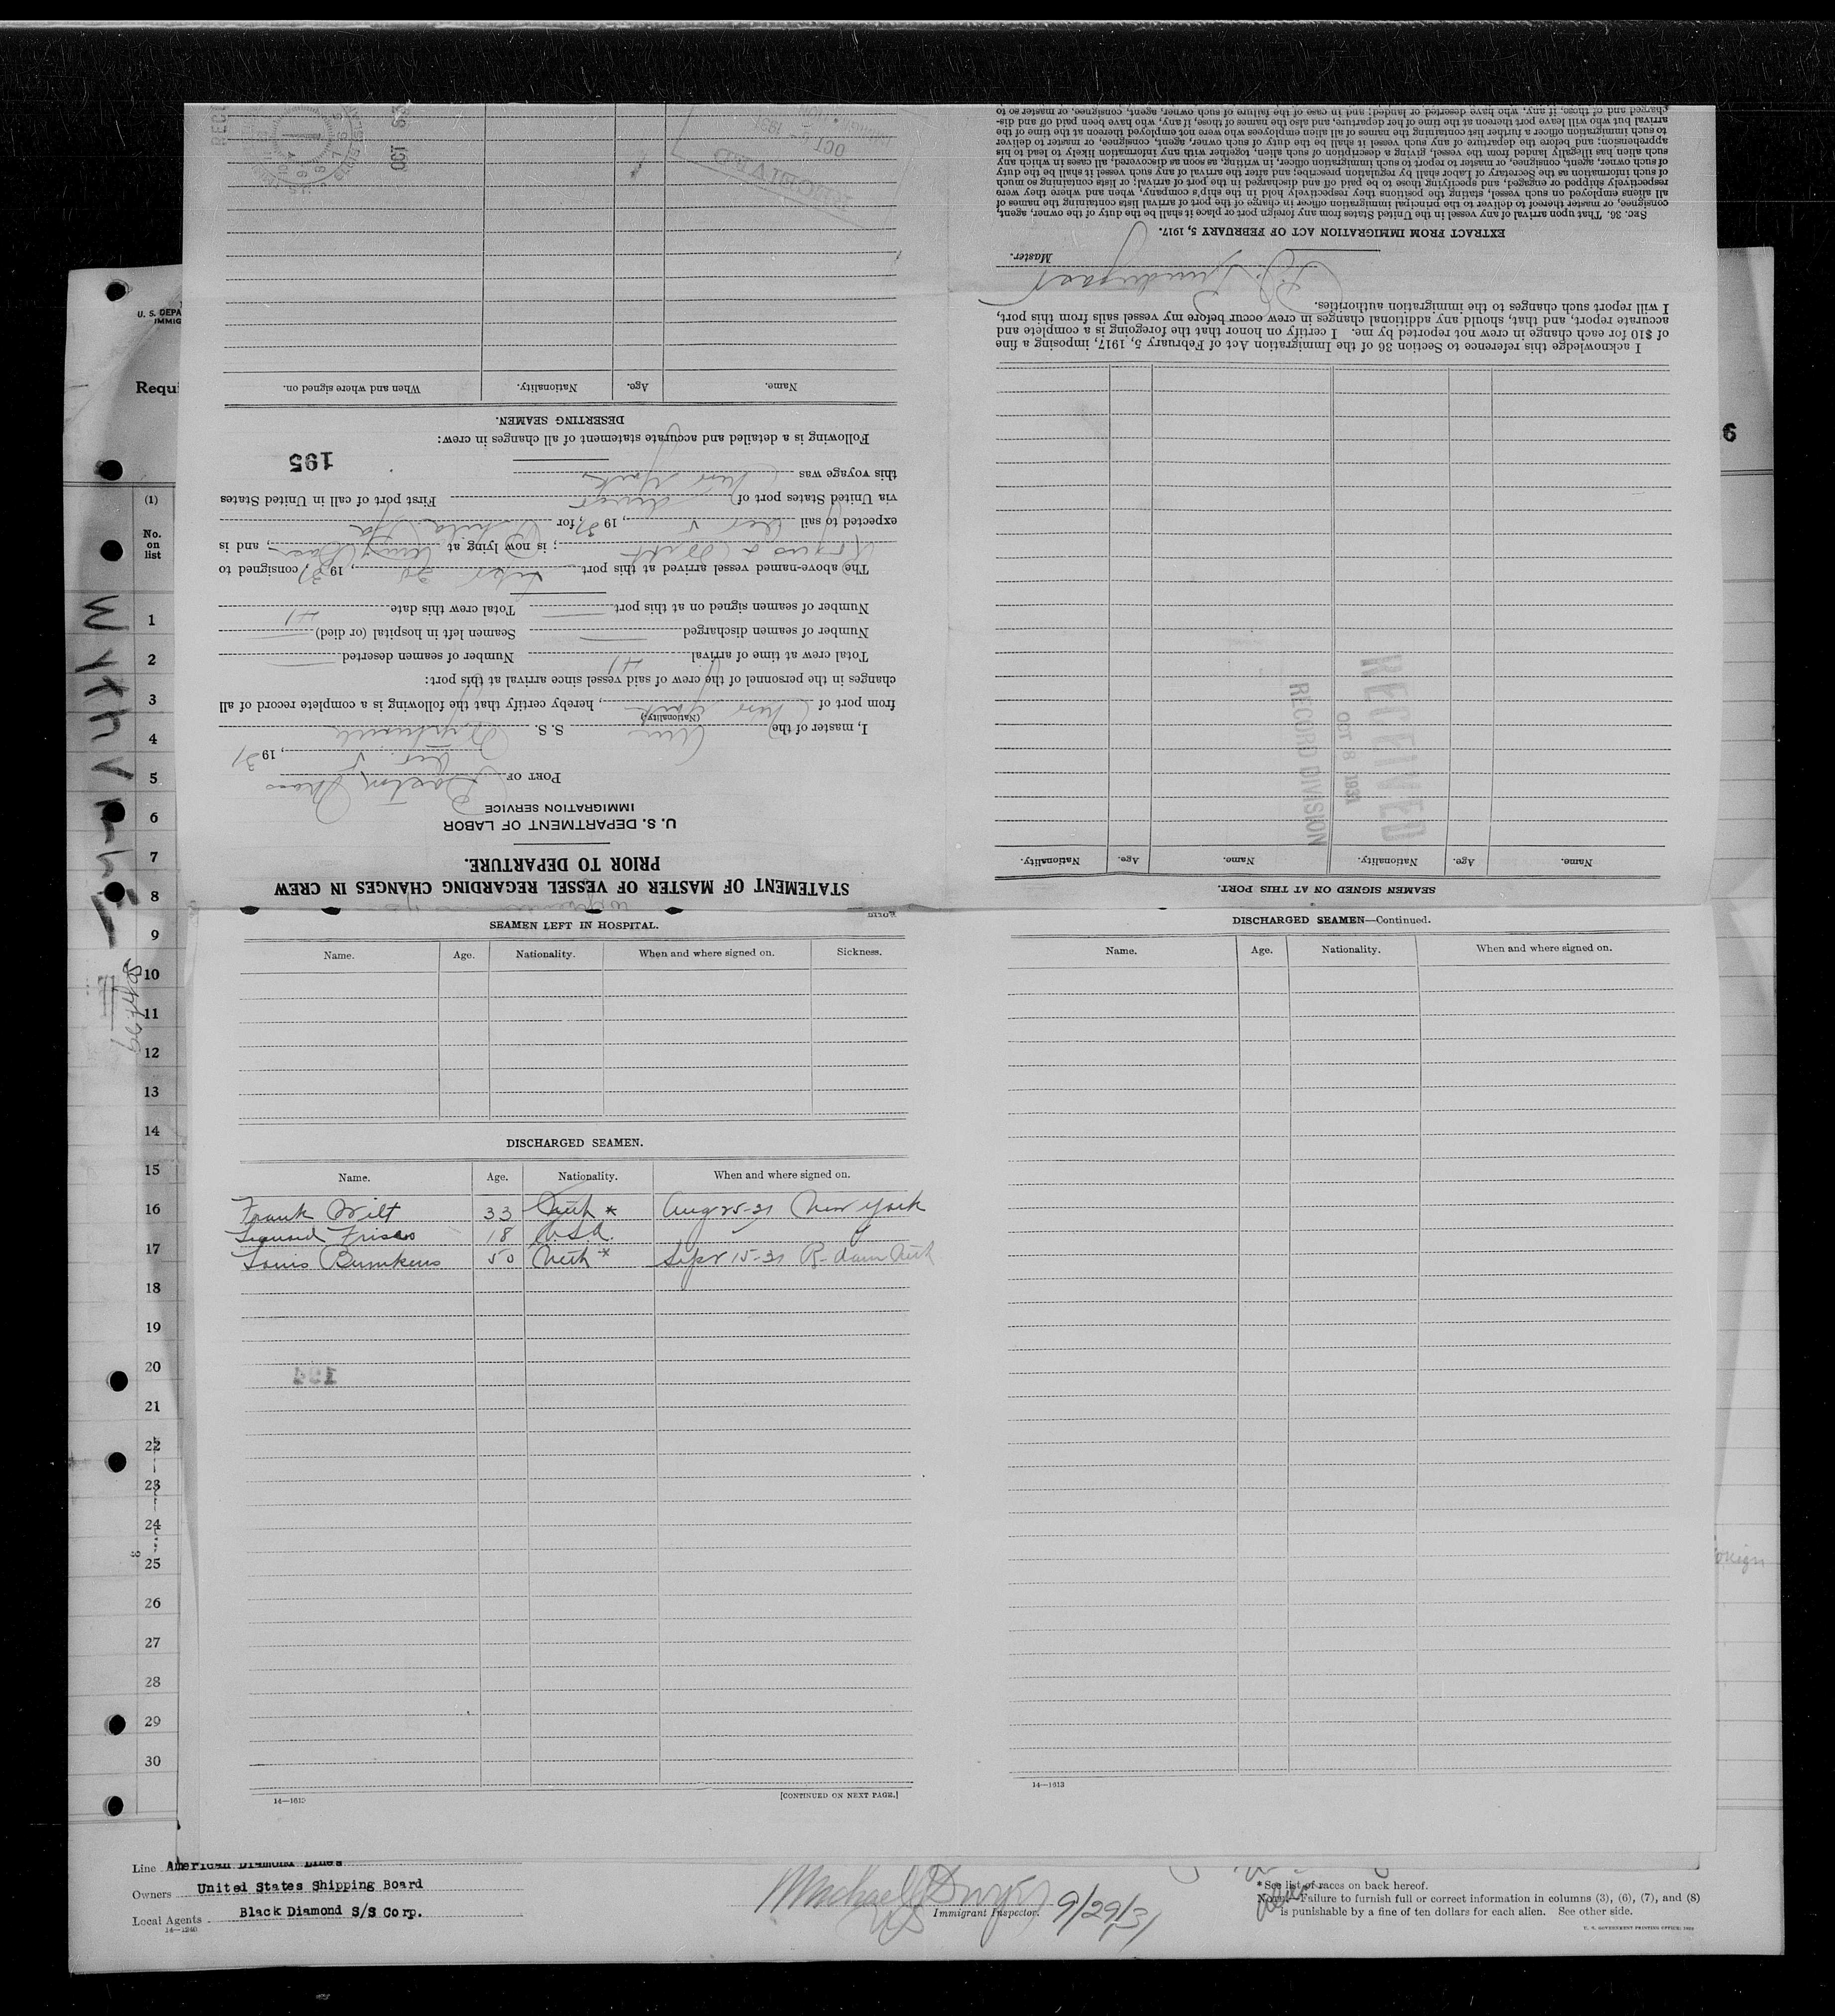 STATEMENT OF MASTER OF VESSEL REGARDING CHANGES IN CREW
PRIOR TO DEPARTURE.
U. S. DEPARTMENT OF LABOR
IMMIGRATION SERVICE
PORT OF Boston Mass
Oct. 5, 1931
I, master of the Am S. S.
(Nationality.)
from port of New York, hereby certify that the following is a complete record of all
changes in the personnel of the crew of said vessel since arrival at this port:
Total crew at time of arrival 41 Number of seamen deserted
Number of seamen discharged Seamen left in hospital (or died)
Number of seamen signed on at this port Total crew this date 41
The above-named vessel arrived at this port, 1931, consigned to
; is now lying at Army Base, and is
expected to sail Oct 5, 1931, for Phila Pa
via United States port of direct First port of call in United States
this voyage was New York
195
Following is a detailed and accurate statement of all changes in crew:
DESERTING SEAMEN.
Name. Age. Nationality. When and where signed on.
RECEIVED
OCT
1931
SEAMEN SIGNED ON AT THIS PORT.
Name. Age. Nationality. Name. Age. Nationality.
RECEIVED
OCT 8 1931
RECORD DIVISION
I acknowledge this reference to Section 36 of the Immigration Act of February 5, 1917, imposing a fine
of $10 for each change in crew not reported by me. I certify on honor that the foregoing is a complete and
accurate report, and that, should any additional changes in crew occur before my vessel sails from this port,
I will report such changes to the immigration authorities.
Master.
EXTRACT FROM IMMIGRATION ACT OF FEBRUARY 5, 1917.
SEC. 36. That upon arrival of any vessel in the United States from any foreign port or place it shall be the duty of the owner, agent,
consignee, or master thereof to deliver to the principal immigration officer in charge of the port of arrival lists containing the names of
all aliens employed on such vessel, stating the positions they respectively hold in the ship's company, when and where they were
respectively shipped or engaged, and specifying those to be paid off and discharged in the port of arrival; or lists containing so much
of such information as the Secretary of Labor shall by regulation prescribe; and after the arrival of any such vessel it shall be the duty
of such owner, agent, consignee, or master to report to such immigration officer, in writing, as soon as discovered, all cases in which any
such alien has illegally landed from the vessel, giving a description of such alien, together with any information likely to lead to his
apprehension; and before the departure of any such vessel it shall be the duty of such owner, agent, consignee, or master to deliver
to such immigration officer a further list containing the names of all alien employees who were not employed thereon at the time of the
arrival but who will leave port thereon at the time of her departure, and also the names of those, if any, who have been paid off and dis-
charged and of those, if any, who have deserted or landed; and in case of the failure of such owner, agent, consignee, or master so to
SEAMEN LEFT IN HOSPITAL.
Name. Age. Nationality. When and where signed on. Sickness.
DISCHARGED SEAMEN.
Name. Age. Nationality. When and where signed on.
Frank Wilt 33 Neth * Aug 25-31 New York
Leonard Frisco 18 U.S.A. "
Louis Brunkens 50 Neth * Sept 15-31 R-dam Neth
194
14—1613 [CONTINUED ON NEXT PAGE.]
DISCHARGED SEAMEN—Continued.
Name. Age. Nationality. When and where signed on.
14—1613
U. S. DEPA
IMMIG
Requi
6
(1)
No.
on
list
1
2
3
4
5
6
7
8
9
10
11
12
13
14
15
16
17
18
19
20
21
22
23
24
25
26
27
28
29
30
oreign
Line American Diamond Lines
Owners United States Shipping Board
Local Agents Black Diamond S/S Corp.
14—1240
Michael J Dwyer 9/29/31
Immigrant Inspector.
* See list of races on back hereof.
NOTE.—Failure to furnish full or correct information in columns (3), (6), (7), and (8)
is punishable by a fine of ten dollars for each alien. See other side.
U. S. GOVERNMENT PRINTING OFFICE: 1929